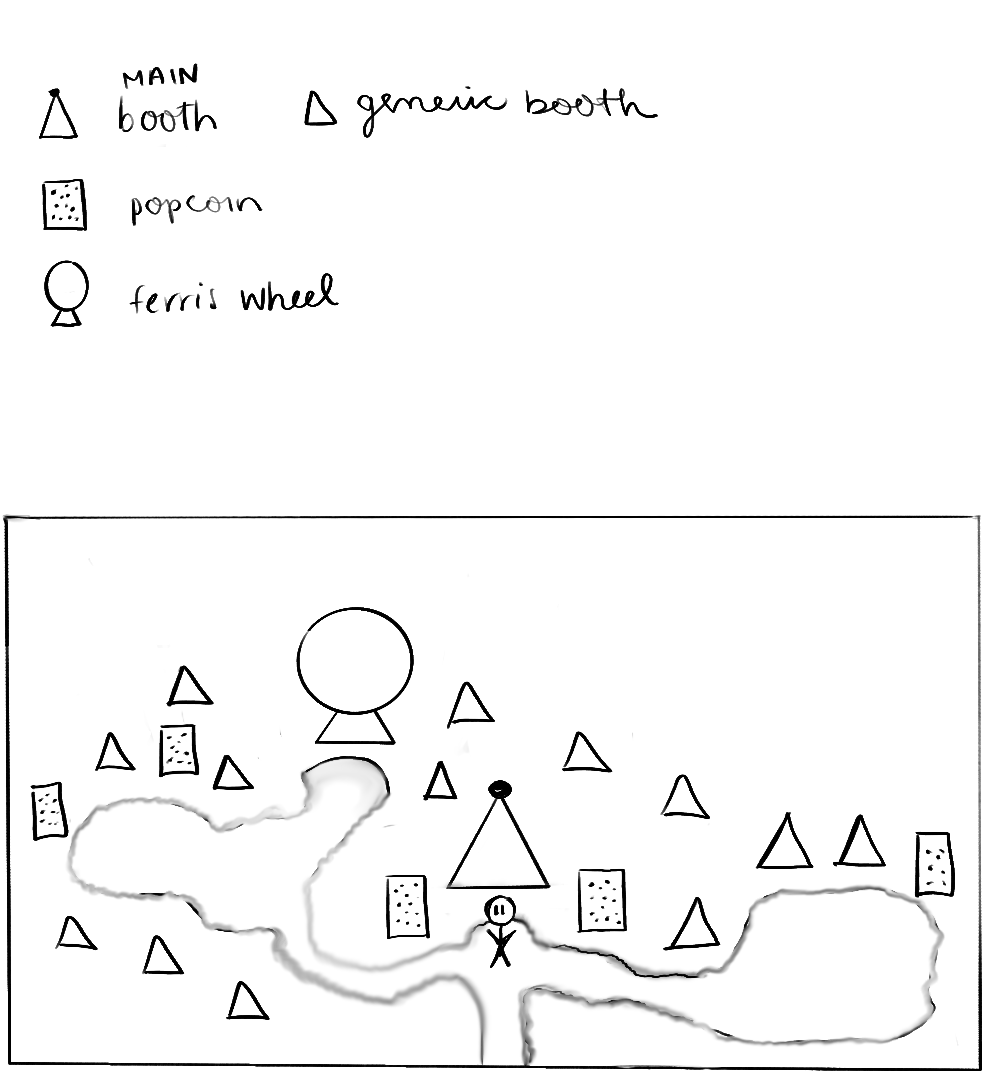 MAIN
booth
generic booth
popcorn
ferris wheel